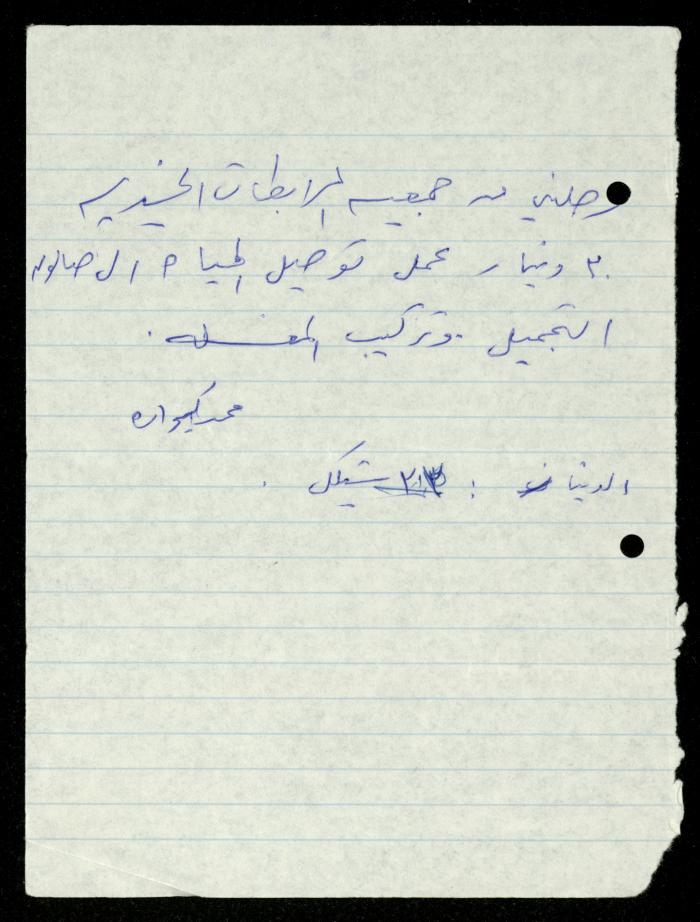 وصلني من جمعيه المرابطات الخيريه
٣٠ دينار عمل توصيل المياه ال صالون
التجميل وتركيب المغسله.
محمد كيوان
الدينار : شيكل.